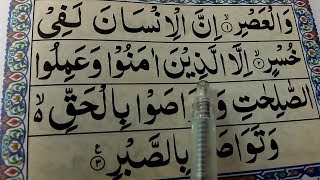 وَالْعَصْرِ ۙ﴿۱﴾ اِنَّ الْاِنْسَانَ لَفِیْ
خُسْرٍ ۙ﴿۲﴾ اِلَّا الَّذِیْنَ اٰمَنُوْا وَعَمِلُوا
الصّٰلِحٰتِ وَتَوَاصَوْا بِالْحَقِّ ۙ
وَتَوَاصَوْا بِالصَّبْرِ ﴿۳﴾